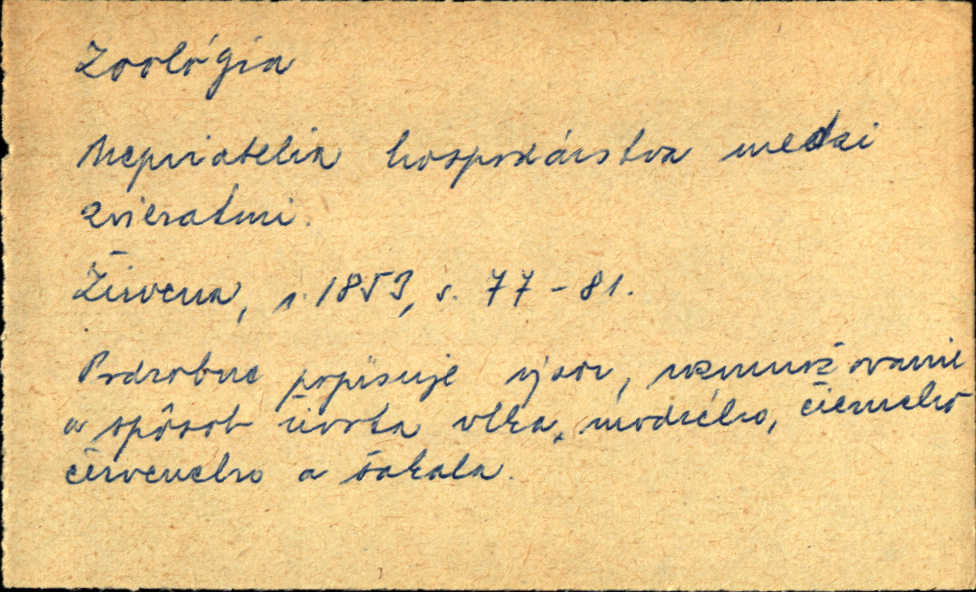 Zoológia
Nepriatelia hospodárstva medzi
zvieratmi.
Živena, r. 1853, s. 77-81.
Podrobne popisuje vývin, rozmnožovanie
a spôsob života vlka, modrého, čierneho
červeneho a šakala.